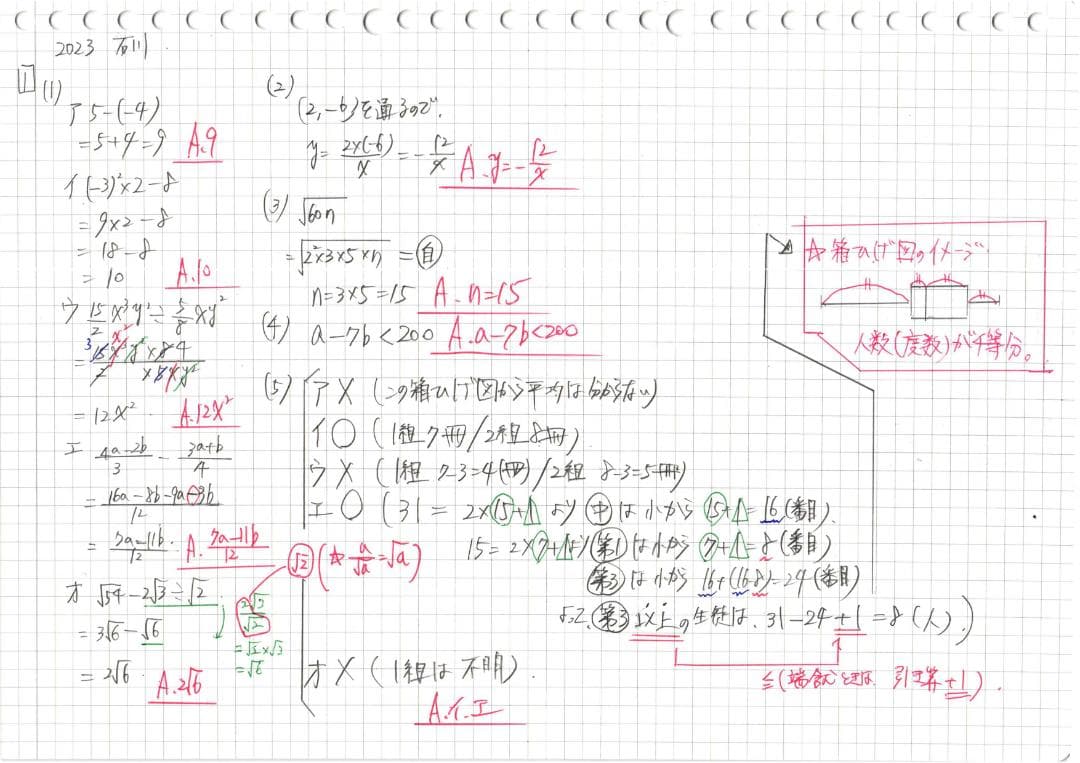 2023 石川
1
(1)
ア 5-(-4)
=5+4=9 A.9
イ (-3)²×2-8
=9×2-8
=18-8
=10 A.10
ウ 15/2 x³y² ÷ 5/8 xy²
=12x² A.12x²
エ (4a-2b)/3 - (3a+b)/4
=(16a-8b-9a-3b)/12
=(7a-11b)/12 A.(7a-11b)/12
オ √54-2√3÷√2
=3√6-√6
=2√6 A.2√6
2√3/√2
=√2×√3
=√6
√2 (☆ a/√a=√a)
(2)
(2,-6)を通るので、
y=2×(-6)/x=-12/x A.y=-12/x
(3) √60n
=√2²×3×5×n=自
n=3×5=15 A.n=15
(4) a-7b<200 A.a-7b<200
(5)
ア× (この箱ひげ図から平均は分からない)
イ○ (1組7冊/2組8冊)
ウ× (1組 7-3=4(冊)/2組 8-3=5冊)
エ○ (31=2×15+1より中は小から15+1=16(番目)
15=2×7+1より第1は小から7+1=8(番目)
第3は小から16+(16-8)=24(番目)
よって、第3以上の生徒は、31-24+1=8(人)。)
≦(端含むときは、引き算+1).
オ× (1組は不明).
A.イ.エ
☆箱ひげ図のイメージ
人数(度数)が4等分。